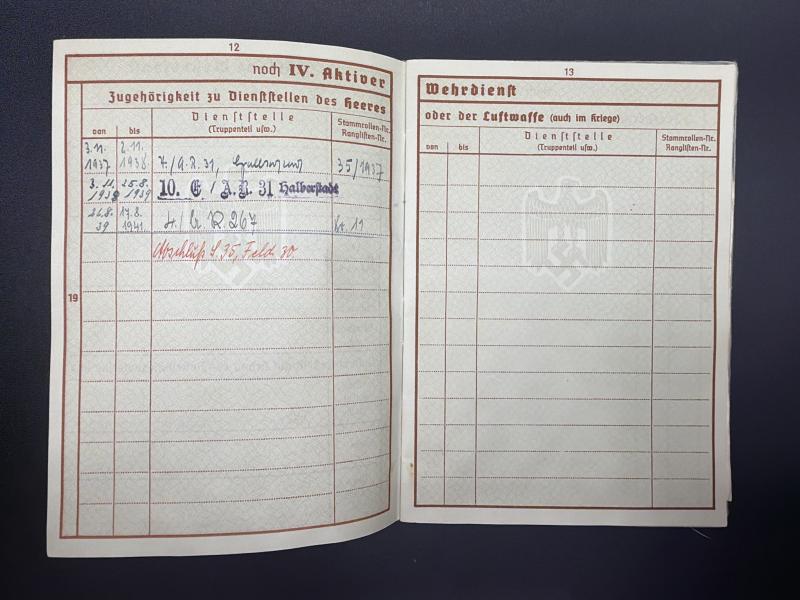 12
noch IV. Aktiver
Zugehörigkeit zu Dienststellen des Heeres
von
bis
Dienststelle
(Truppenteil usw.)
Stammrollen-Nr.
Ranglisten-Nr.
3.11. 1937
2.11. 1938
7./A.R. 31,
35/1937
3.11. 1938
25.8. 1939
10. E / A.R. 31 Halberstadt
26.8. 39
17.8. 1941
4./A.R. 267
Abschluß S. 35, Feld 30
19
13
Wehrdienst
oder der Luftwaffe (auch im Kriege)
von
bis
Dienststelle
(Truppenteil usw.)
Stammrollen-Nr.
Ranglisten-Nr.